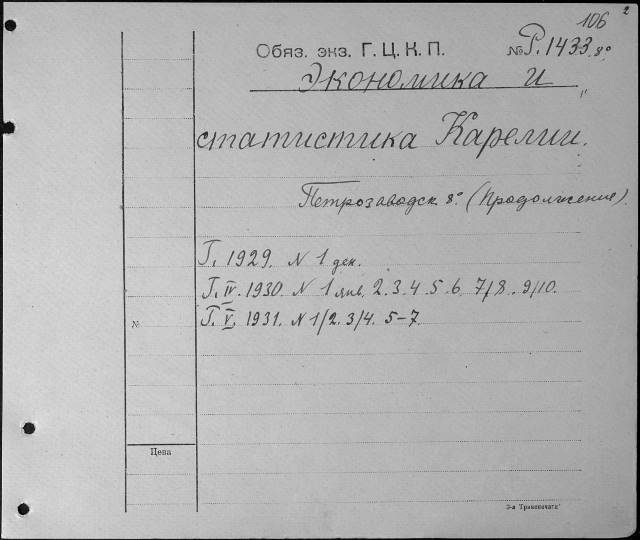 106 2
Обяз. экз. Г. Ц. К. П. № Р. 1433. 8°
Экономика и
статистика Карелии.
Петрозаводск. 8°. (Продолжение).
Г. 1929. N 1 дек.
Г. IV. 1930. N 1 янв. 2. 3. 4. 5. 6. 7/8. 9/10.
Г. V. 1931. N 1/2. 3/4. 5-7.
№
Цена